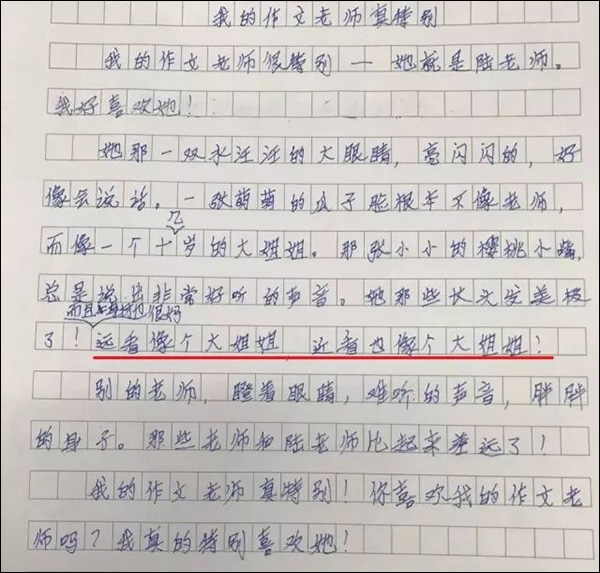 我的作文老师真特别
我的作文老师很特别—她就是陆老师。
我好喜欢她！
她那一双水汪汪的大眼睛，亮闪闪的，好
像会说话。一张萌萌的瓜子脸根本不像老师，
几
而像一个十岁的大姐姐。那张小小的樱桃小嘴，
总是说出非常好听的声音。她那些长头发美极
而且身材也很好
了！远看像个大姐姐 近看也像个大姐姐！
别的老师，瞪着眼睛，难听的声音，胖胖
的身子。那些老师和陆老师比起来差远了！
我的作文老师真特别！你喜欢我的作文老
师吗？我真的特别喜欢她！